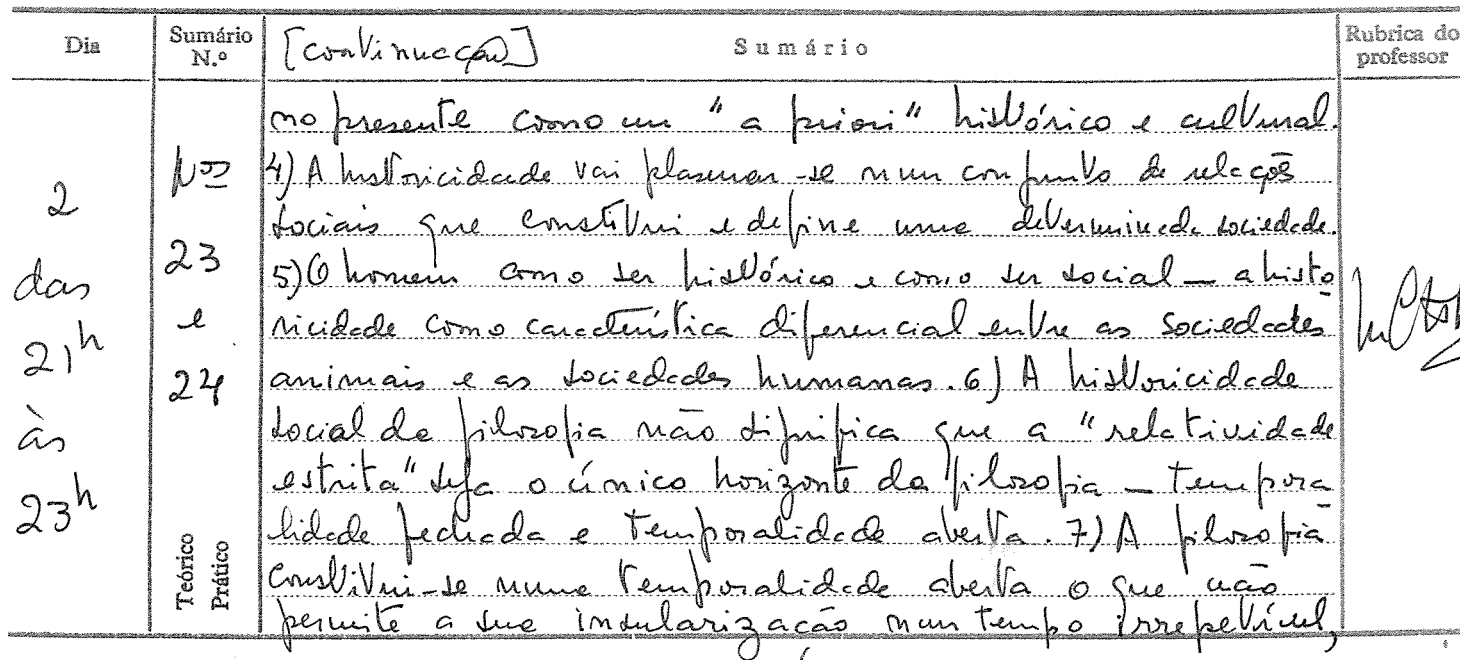 Dia
Sumário N.º
[Continuação]
Sumário
Rubrica do professor
2
das
21h
às
23h
Nos
23
e
24
Teórico
Prático
no presente como um "a priori" histórico e cultural.
4) A historicidade vai plasmar-se num conjunto de relações
sociais que constitui e define uma determinada sociedade.
5) O homem como ser histórico e como ser social — a histo
ricidade como característica diferencial entre as sociedades
animais e as sociedades humanas. 6) A historicidade
social da filosofia não significa que a "relatividade
estrita" seja o único horizonte da filosofia — tempora
lidade fechada e temporalidade aberta. 7) A filosofia
constitui-se numa temporalidade aberta o que não
permite a sua insularização num tempo irrepetível,